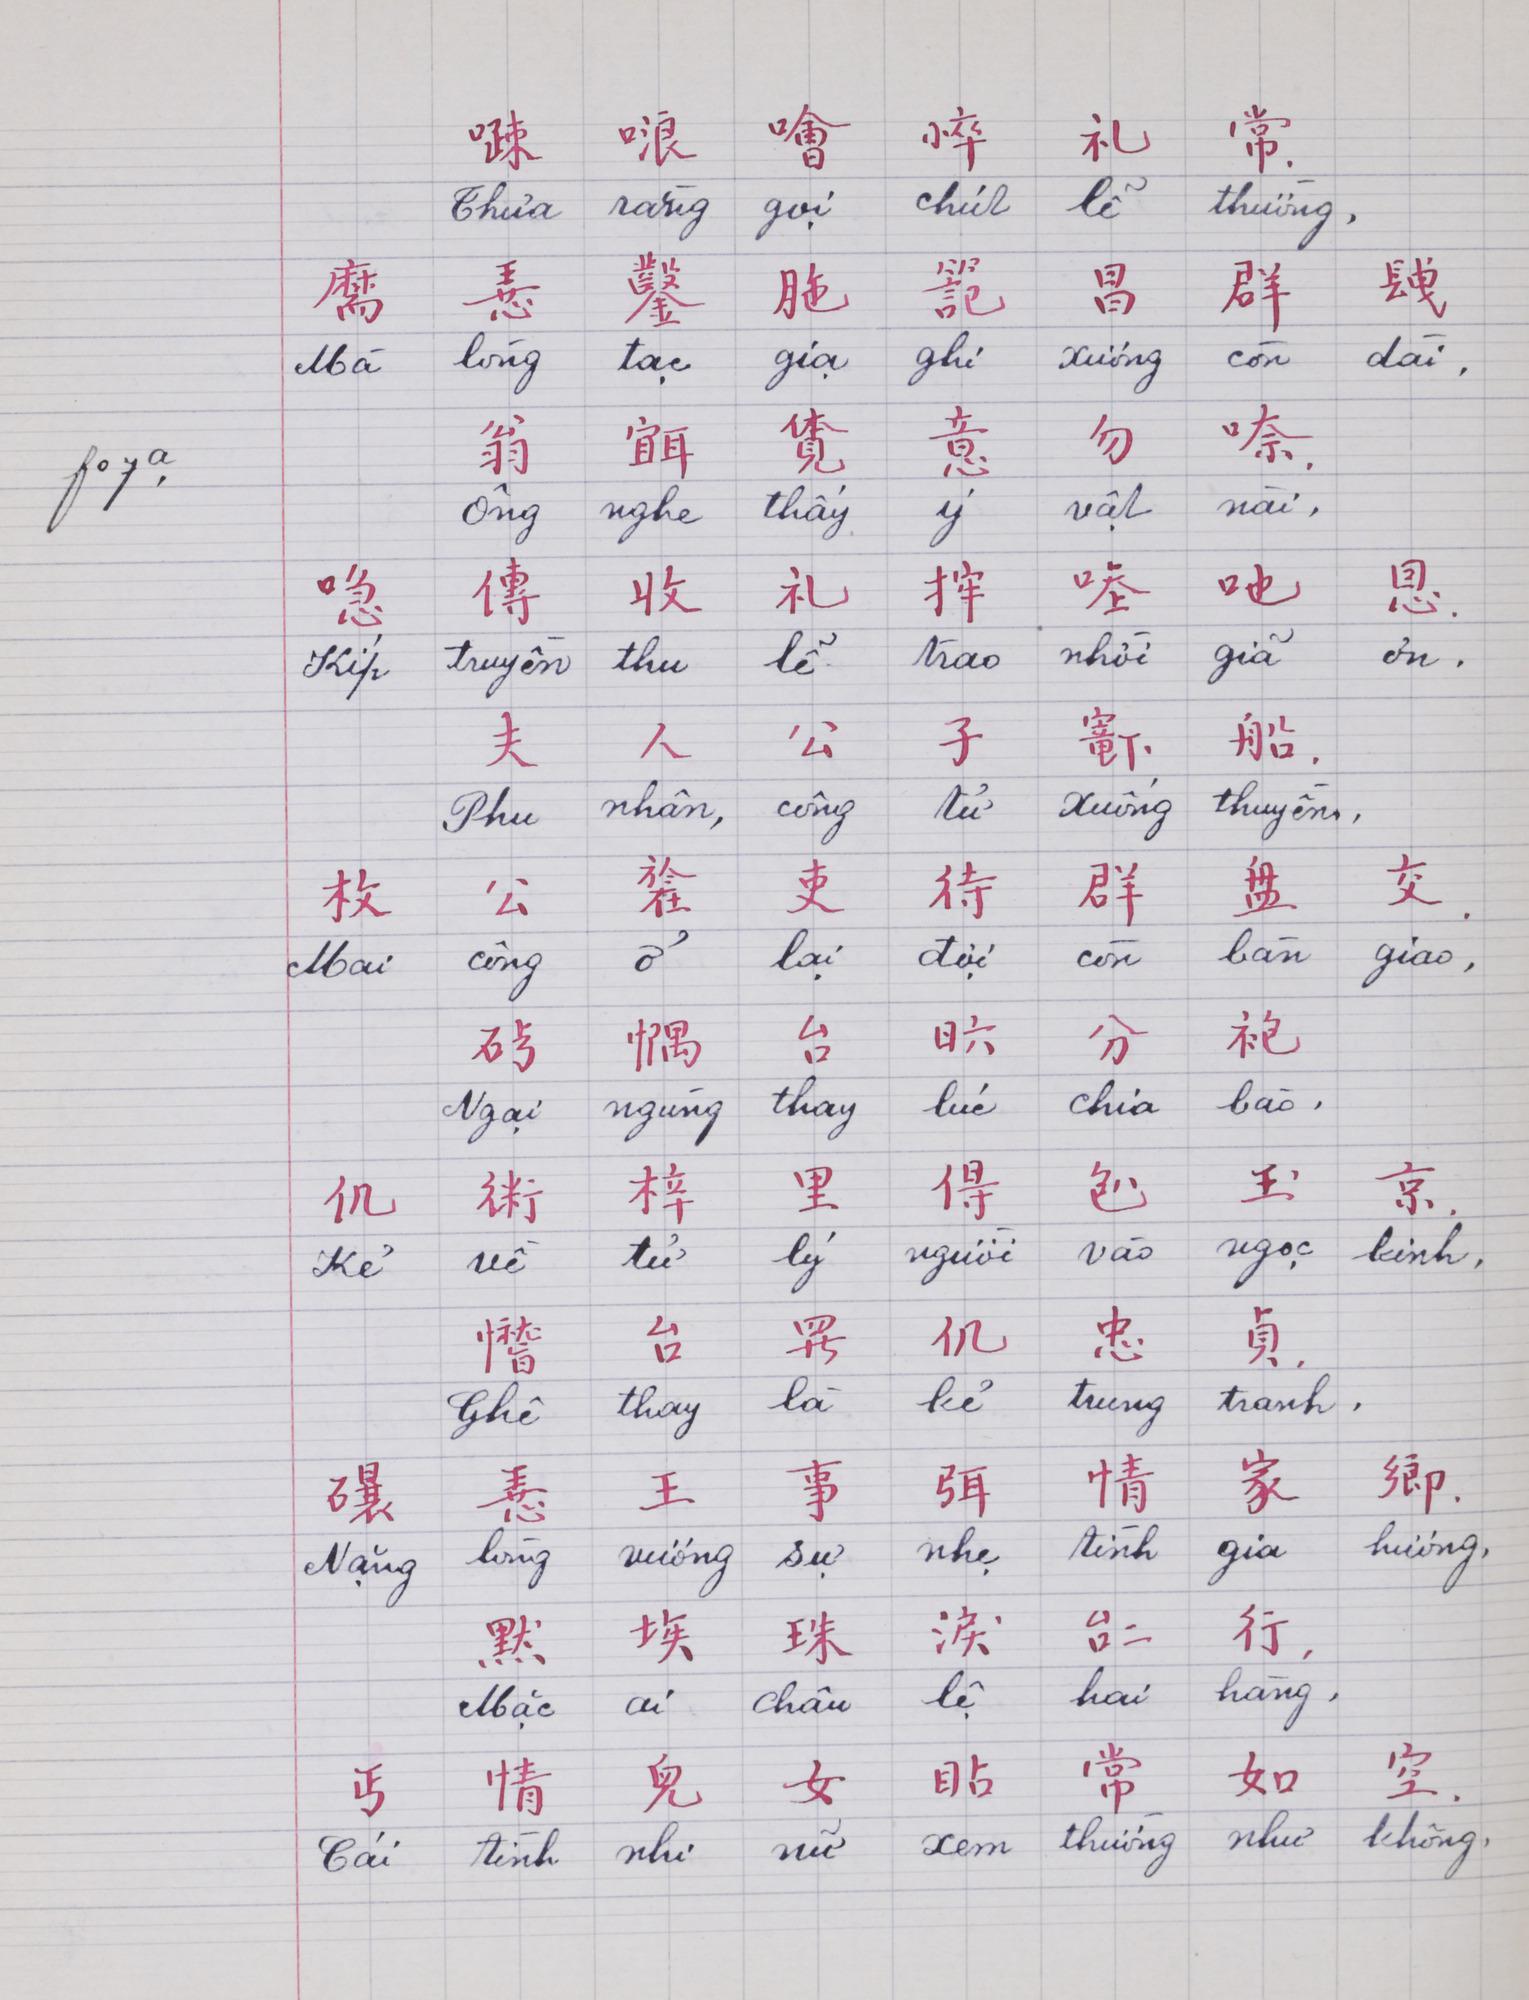 𠽔 哴 噲 啐 礼 常.
Thưa rằng gọi chút lễ thường,
麽 𢚸 鑿 胣 𥱬 昌 群 𨱽
Mà lòng tạc giạ ghi xương còn dài,
翁 𦖑 覽 意 勿 嗦.
Ông nghe thấy ý vật nài,
喼 傳 收 礼 𢭂 㘨 吔 恩.
Kíp truyền thu lễ trao nhời giã ơn.
夫 人 公 子 𫴋 船.
Phu nhân, công tử xuống thuyền,
枚 公 於 吏 待 群 盘 交.
Mai công ở lại đợi còn bàn giao,
碍 㥥 台 𣅶 分 袍
Ngại ngùng thay lúc chia bào,
仉 術 梓 里 得 𠓨 玉 京.
Kẻ về tử lý người vào ngọc kinh,
台 𱺵 仉 忠 貞.
Ghê thay là kẻ trung tranh,
𥗾 𢚸 王 事 弭 情 家 鄉.
Nặng lòng vương sự nhẹ tình gia hương,
默 埃 珠 淚 𠄩 行,
Mặc ai châu lệ hai hàng,
丐 情 兒 女 䀡 常 如 空.
Cái tình nhi nữ xem thường như không,